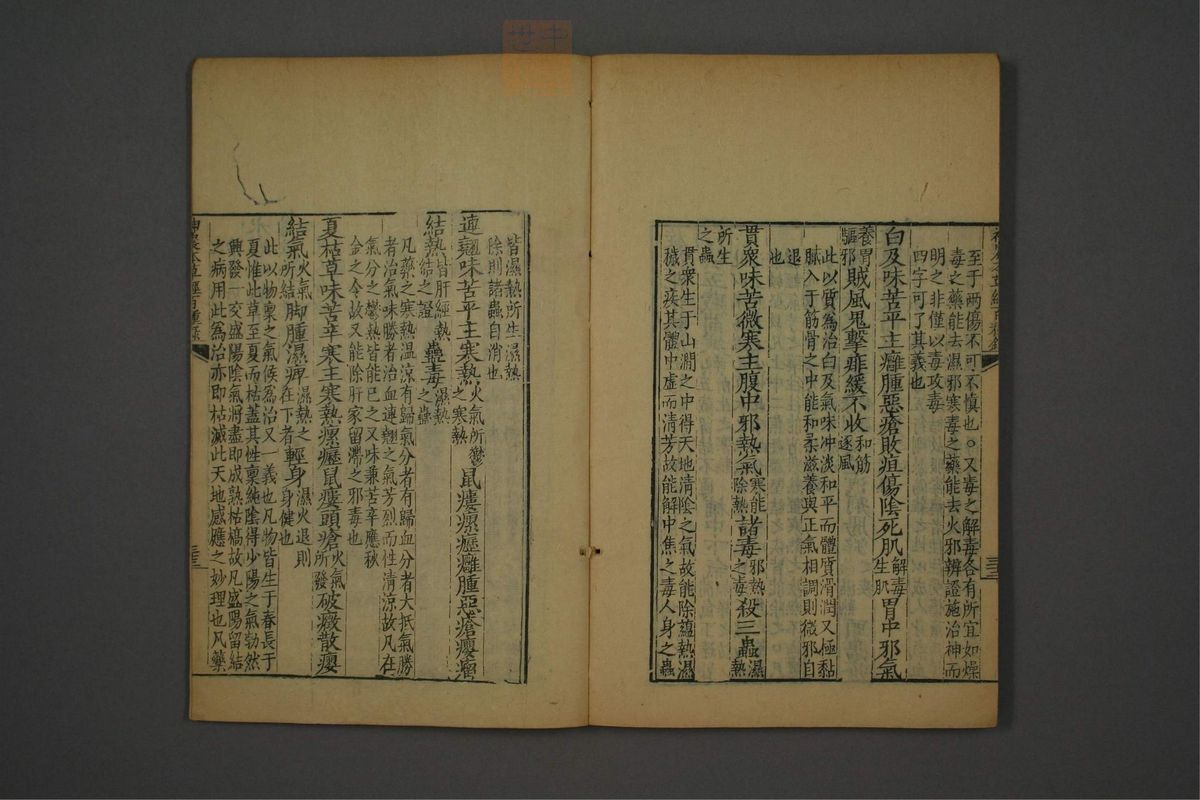 至于兩傷不可不慎也○又毒之解毒各有所宜如燥
毒之藥能去濕邪寒毒之藥能去火邪辨證施治神而
明之非僅以毒攻毒
四字可了其義也
白及味苦平主癰腫惡瘡敗疽傷陰死肌解毒生肌胃中邪氣
養胃驅邪賊風鬼擊痱緩不收和筋逐風
此以質為治白及氣味冲淡和平而體質滑潤又極黏
膩入于筋骨之中能和柔滋養與正氣相調則微邪自
退
也
貫衆味苦微寒主腹中邪熱氣寒能除熱諸毒邪熱之毒殺三蟲濕熱
所生之蟲
貫衆生于山澗之中得天地清陰之氣故能除蘊熱濕
穢之疾其體中虛而清芳故能解中焦之毒人身之蟲
皆濕熱所生濕熱
除則諸蟲自消也
連翹味苦平主寒熱火氣所鬱之寒熱鼠瘻瘰癧癰腫惡瘡癭瘤
結熱皆肝經熱結之證蠱毒濕熱之蟲
凡藥之寒熱温涼有歸氣分者有歸血分者大抵氣勝
者治氣味勝者治血連翹之氣芳烈而性清涼故凡在
氣分之鬱熱皆能已之又味兼苦辛應秋
金之令故又能除肝家留滯之邪毒也
夏枯草味苦辛寒主寒熱瘰癧鼠瘻頭瘡火氣所發破癥散癭
結氣火氣所結脚腫濕痹濕熱之在下者輕身濕火退則身健也
此以物稟之氣候為治又一義也凡物皆生于春長于
夏惟此草至夏而枯蓋其性稟純陰得少陽之氣勃然
興發一交盛陽陰氣將盡即成熟枯槁故凡盛陽留結
之病用此為治亦即枯滅此天地感應之妙理也凡藥